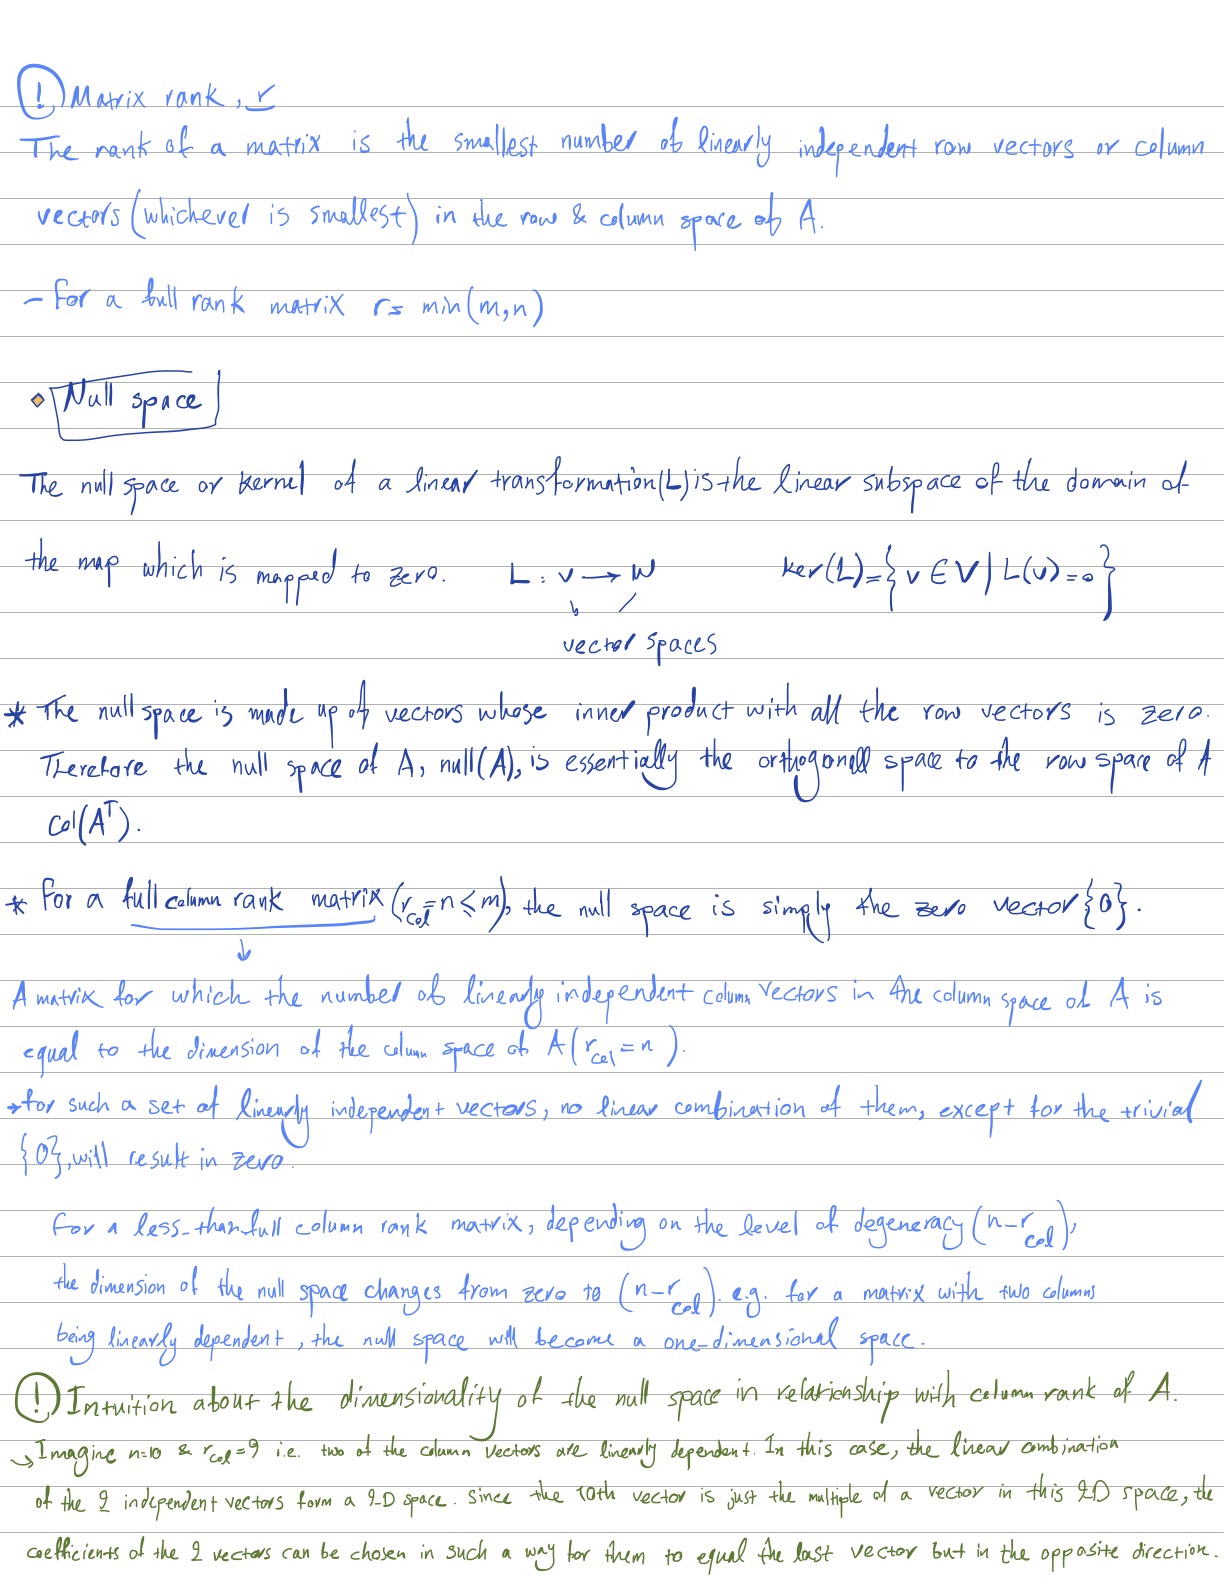 ! Matrix rank, r
The rank of a matrix is the smallest number of linearly independent row vectors or column
vectors (whichever is smallest) in the row & column space of A.
- For a full rank matrix r = min(m,n)
Null space
The null space or kernel of a linear transformation (L) is the linear subspace of the domain of
the map which is mapped to zero. L : v → W ker(L)={v ∈ V | L(v)=0}
vector spaces
* The null space is made up of vectors whose inner product with all the row vectors is zero.
Therefore the null space of A, null(A), is essentially the orthogonal space to the row space of A
Col(Aᵀ).
* For a full column rank matrix (r_col = n ≤ m), the null space is simply the zero vector {0}.
↓
A matrix for which the number of linearly independent column vectors in the column space of A is
equal to the dimension of the column space of A (r_col = n).
→ for such a set of linearly independent vectors, no linear combination of them, except for the trivial
{0}, will result in zero.
For a less-than full column rank matrix, depending on the level of degeneracy (n-r_col),
the dimension of the null space changes from zero to (n-r_col). e.g. for a matrix with two columns
being linearly dependent, the null space will become a one-dimensional space.
! Intuition about the dimensionality of the null space in relationship with column rank of A.
→ Imagine n=10 & r_col = 9 i.e. two of the column vectors are linearly dependent. In this case, the linear combination
of the 9 independent vectors form a 9-D space. Since the 10th vector is just the multiple of a vector in this 9D space, the
coefficients of the 9 vectors can be chosen in such a way for them to equal the last vector but in the opposite direction.